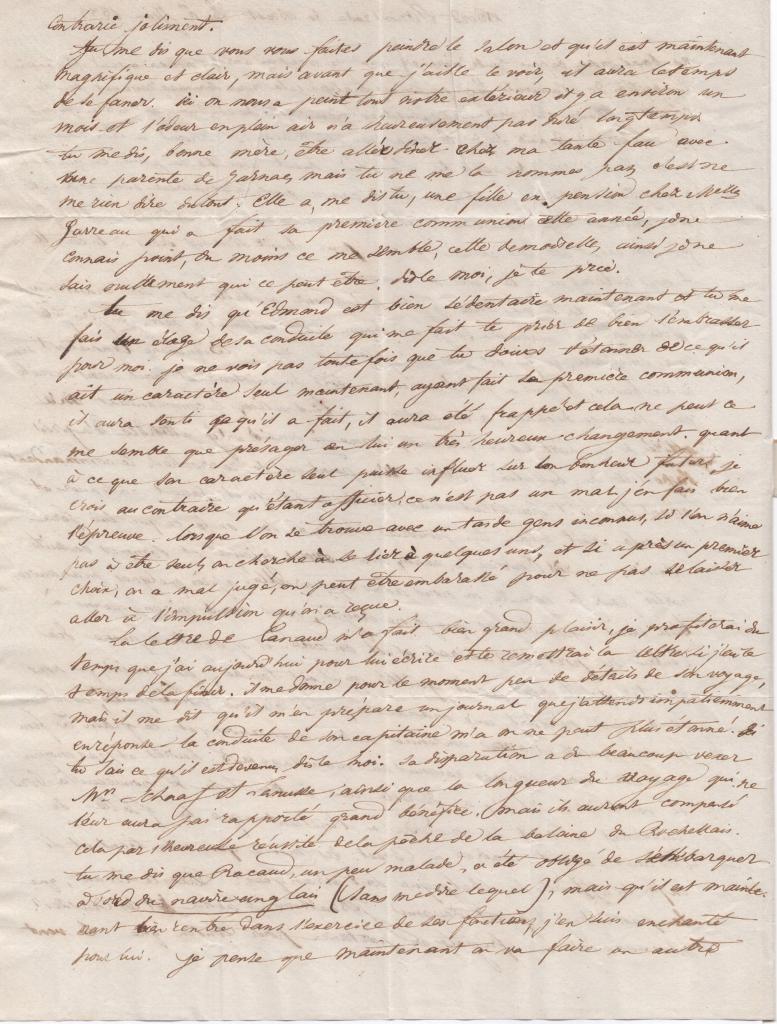 contrarie joliment.
Tu me dis que vous vous faites peindre le salon et qu'il est maintenant
magnifique et clair, mais avant que j'aille le voir, il aura le temps
de se faner. Ici on nous a peint tout notre extérieur il y a environ un
mois et l'odeur en plein air n'a heureusement pas duré longtemps.
tu me dis, bonne mère, être allée dîner chez ma tante fau avec
une parente de Jarnac, mais tu ne me la nommes pas, c'est ne
me rien dire du tout. Elle a, me dis tu, une fille en pension chez Melle
Jarreau qui a fait sa première communion cette année, je ne
connais point, du moins ce me semble, cette demoiselle, ainsi je ne
sais nullement qui ce peut être. dis le moi, je te prie.
tu me dis qu'Edmond est bien sédentaire maintenant et tu me
fais un éloge de sa conduite qui me fait te prier de bien l'embrasser
pour moi. je ne vois pas toutefois que tu doives t'étonner de ce qu'il
ait un caractère seul maintenant, ayant fait sa première communion,
il aura senti ce qu'il a fait, il aura été frappé et cela ne peut ce
me semble que présager en lui un très heureux changement. quant
à ce que son caractère seul puisse influer sur son bonheur futur, je
crois au contraire qu'étant officier, ce n'est pas un mal, j'en fais bien
l'épreuve. lorsque l'on se trouve avec un tas de gens inconnus, si l'on n'aime
pas à être seul, on cherche à se lier à quelques uns, et si après un premier
choix, on a mal jugé, on peut être embarassé pour ne pas se laisser
aller à l'impulsion qu'on a reçue.
La lettre de Canaud m'a fait bien grand plaisir, je profiterai du
temps que j'ai aujourd'hui pour lui écrire et te remettrai la lettre si j'ai le
temps de la finir. il me donne pour le moment peu de détails de son voyage,
mais il me dit qu'il m'en prépare un journal que j'attends impatiemment
en réponse. la conduite de son capitaine m'a on ne peut plus étonné. Si
tu sais ce qu'il est devenu, dis le moi. sa disparution a dû beaucoup vexer
Mrs Schaaf et Lanusse, ainsi que la longueur du voyage qui ne
leur aura pas rapporté grand bénéfice. mais ils auront compensé
cela par l'heureuse réussite de la pêche de la baleine du Rochellais.
tu me dis que Racaud, un peu malade, a été obligé de s'embarquer
à bord du navire anglais (sans me dire lequel), mais qu'il est mainte-
nant bien rentré dans l'exercice de ses fonctions, j'en suis enchanté
pour lui. je pense que maintenant on va faire un autre